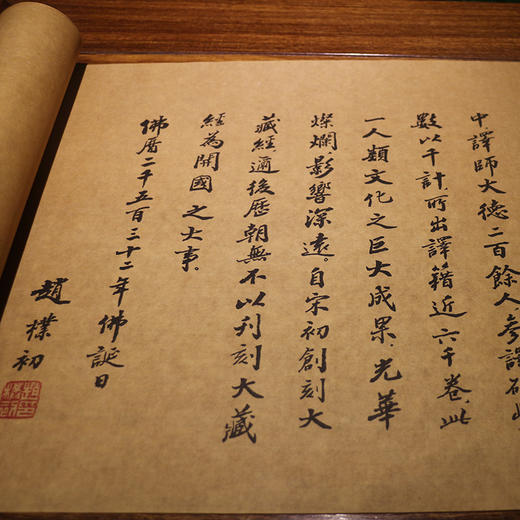 中譯師大德二百餘人參譯
數以千計所出譯籍近六千卷此
一人類文化之巨大成果光華
燦爛影響深遠。自宋初創刻大
藏經邇後歷朝無不以刊刻大藏
經為開國之大事。
佛曆二千五百三十二年佛誕日
趙樸初